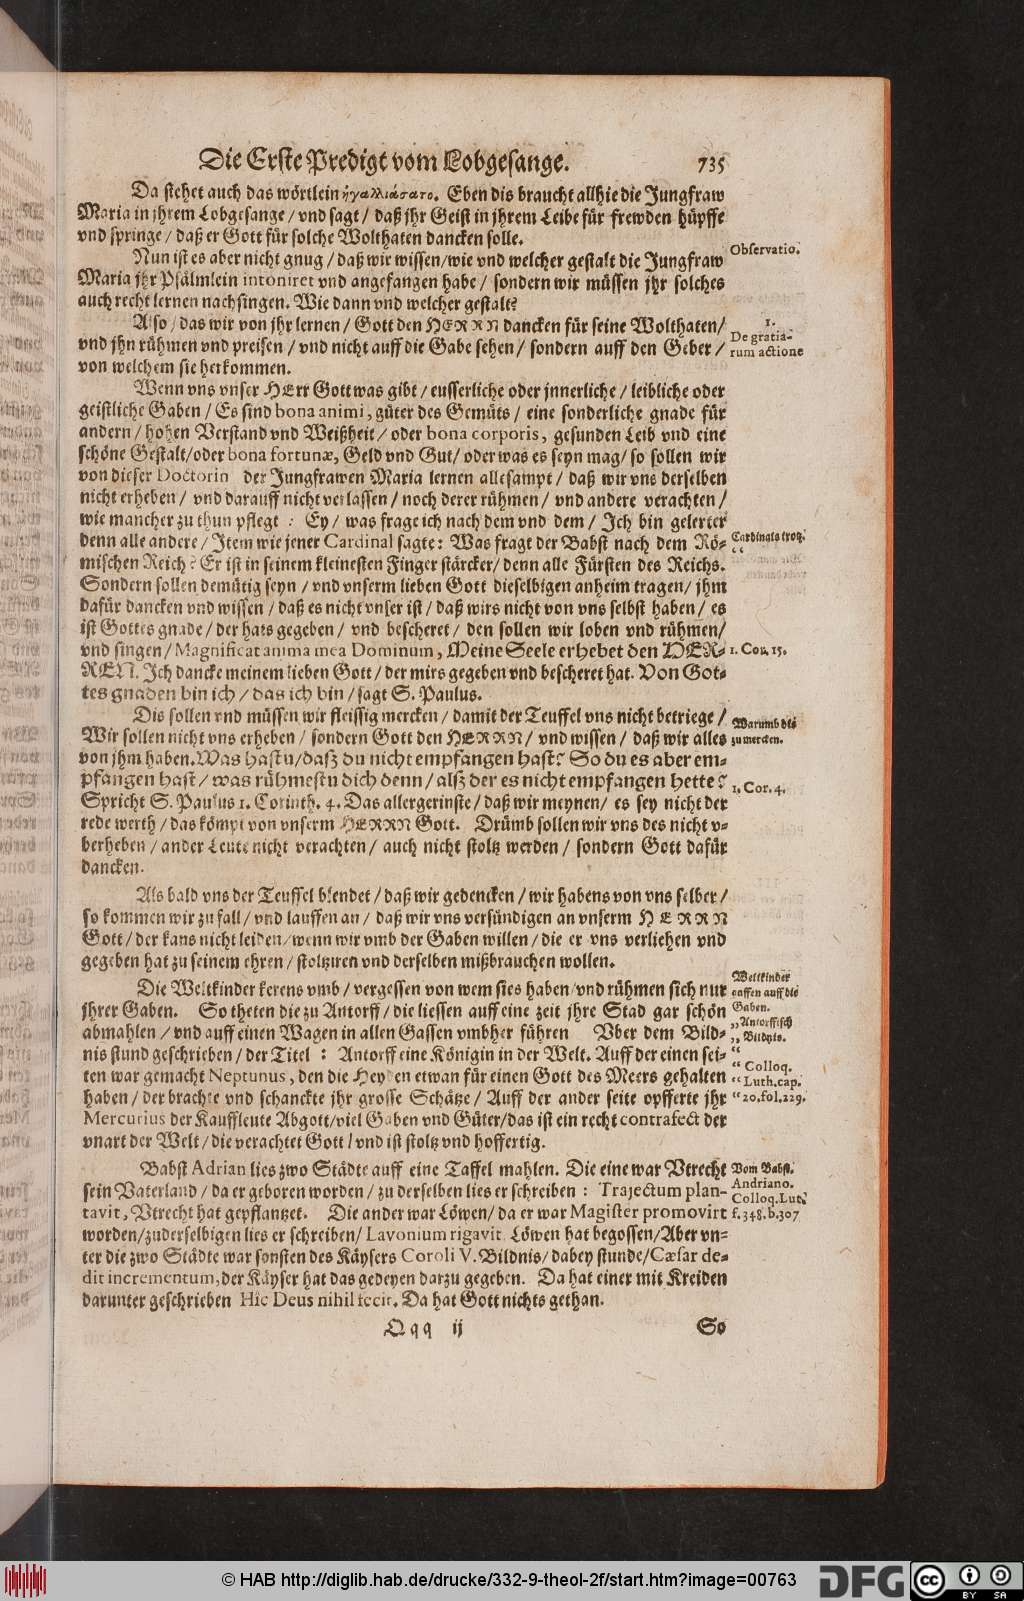 Die Erste Predigt vom Lobgesange. 735
Da stehet auch das wörtlein ἠγαλλιάσατο. Eben dis braucht allhie die Jungfraw
Maria in jhrem Lobgesange / vnd sagt / daß jhr Geist in jhrem Leibe für frewden hüpffe
vnd springe / daß er Gott für solche Wolthaten dancken solle.
Observatio.
Nun ist es aber nicht gnug / daß wir wissen / wie vnd welcher gestalt die Jungfraw
Maria jhr Psälmlein intoniret vnd angefangen habe / sondern wir müssen jhr solches
auch recht lernen nachsingen. Wie dann vnd welcher gestalt?
1.
De gratia-
rum actione
Also / das wir von jhr lernen / Gott den HERRN dancken für seine Wolthaten /
vnd jhn rühmen vnd preisen / vnd nicht auff die Gabe sehen / sondern auff den Geber /
von welchem sie herkommen.
Wenn vns vnser HErr Gott was gibt / eusserliche oder jnnerliche / leibliche oder
geistliche Gaben / Es sind bona animi, güter des Gemüts / eine sonderliche gnade für
andern / hohen Verstand vnd Weißheit / oder bona corporis, gesunden Leib vnd eine
schöne Gestalt / oder bona fortunæ, Geld vnd Gut / oder was es seyn mag / so sollen wir
von dieser Doctorin der Jungfrawen Maria lernen allesampt / daß wir vns derselben
nicht erheben / vnd darauff nicht verlassen / noch derer rühmen / vnd andere verachten /
wie mancher zu thun pflegt : Ey / was frage ich nach dem vnd dem / Ich bin gelerter
denn alle andere / Item wie jener Cardinal sagte: Was fragt der Babst nach dem Rö-
Cardinals trotz.
“
mischen Reich? Er ist in seinem kleinesten Finger stärcker / denn alle Fürsten des Reichs.
Sondern sollen demütig seyn / vnd vnserm lieben Gott dieselbigen anheim tragen / jhm
dafür dancken vnd wissen / daß es nicht vnser ist / daß wirs nicht von vns selbst haben / es
ist Gottes gnade / der hats gegeben / vnd bescheret / den sollen wir loben vnd rühmen /
vnd singen / Magnificat anima mea Dominum, Meine Seele erhebet den HER-
1. Cor. 15.
REN. Ich dancke meinem lieben Gott / der mirs gegeben vnd bescheret hat. Von Got-
tes gnaden bin ich / das ich bin / sagt S. Paulus.
Dis sollen vnd müssen wir fleissig mercken / damit der Teuffel vns nicht betriege /
Warumb dis
zu mercken.
Wir sollen nicht vns erheben / sondern Gott den HERRN / vnd wissen / daß wir alles
von jhm haben. Was hastu / daß du nicht empfangen hast? So du es aber em-
pfangen hast / was rühmestu dich denn / alß der es nicht empfangen hette?
1. Cor. 4.
Spricht S. Paulus 1. Corinth. 4. Das allergerinste / daß wir meynen / es sey nicht der
rede werth / das kömpt von vnserm HERRN Gott. Drümb sollen wir vns des nicht v-
berheben / ander Leute nicht verachten / auch nicht stoltz werden / sondern Gott dafür
dancken.
Als bald vns der Teuffel blendet / daß wir gedencken / wir habens von vns selber /
so kommen wir zu fall / vnd lauffen an / daß wir vns versündigen an vnserm HERRN
Gott / der kans nicht leiden / wenn wir vmb der Gaben willen / die er vns verliehen vnd
gegeben hat zu seinem ehren / stoltziren vnd derselben mißbrauchen wollen.
Weltkinder
gaffen auff die
Gaben.
„ Antorffisch
„ Bildnis.
“
“ Colloq.
“ Luth. cap.
“ 20. fol. 229.
Die Weltkinder kerens vmb / vergessen von wem sies haben / vnd rühmen sich nur
jhrer Gaben. So theten die zu Antorff / die liessen auff eine zeit jhre Stad gar schön
abmahlen / vnd auff einen Wagen in allen Gassen vmbher führen Vber dem Bild-
nis stund geschrieben / der Titel : Antorff eine Königin in der Welt. Auff der einen sei-
ten war gemacht Neptunus, den die Heyden etwan für einen Gott des Meers gehalten
haben / der brachte vnd schanckte jhr grosse Schätze / Auff der ander seite opfferte jhr
Mercurius der Kauffleute Abgott / viel Gaben vnd Güter / das ist ein recht contrafect der
vnart der Welt / die verachtet Gott / vnd ist stoltz vnd hoffertig.
Vom Babst.
Andriano.
Colloq. Lut.
f. 348. b. 307
Babst Adrian lies zwo Städte auff eine Taffel mahlen. Die eine war Vtrecht
sein Vaterland / da er geboren worden / zu derselben lies er schreiben : Trajectum plan-
tavit, Vtrecht hat gepflantzet. Die ander war Löwen / da er war Magister promovirt
worden / zu derselbigen lies er schreiben / Lavonium rigavit, Löwen hat begossen / Aber vn-
ter die zwo Städte war sonsten des Käysers Coroli V. Bildnis / dabey stunde / Cæsar de-
dit incrementum, der Käyser hat das gedeyen darzu gegeben. Da hat einer mit Kreiden
darunter geschrieben Hic Deus nihil fecit. Da hat Gott nichts gethan.
Qqq ij So
© HAB http://diglib.hab.de/drucke/332-9-theol-2f/start.htm?image=00763
DFG
cc BY SA